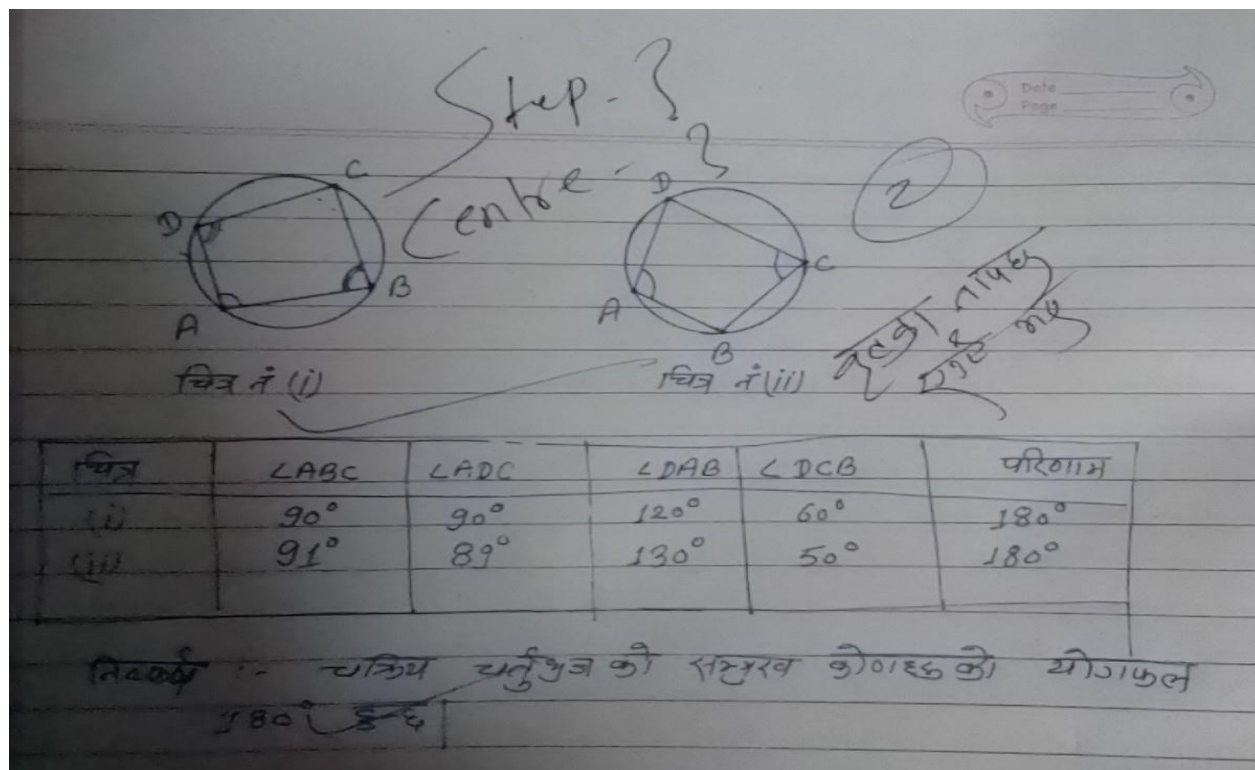 Step-3
Date
Page
Centre-?
2
C
D
B
A
D
C
A
B
चित्र नं (i)
चित्र नं (ii)
चित्र ∠ABC ∠ADC ∠DAB ∠DCB परिणाम
(i) 90° 90° 120° 60° 180°
(ii) 91° 89° 130° 50° 180°
निष्कर्ष :- चक्रिय चर्तुभुज को सम्मुख कोणहरु को योगफल
180° हुन्छ